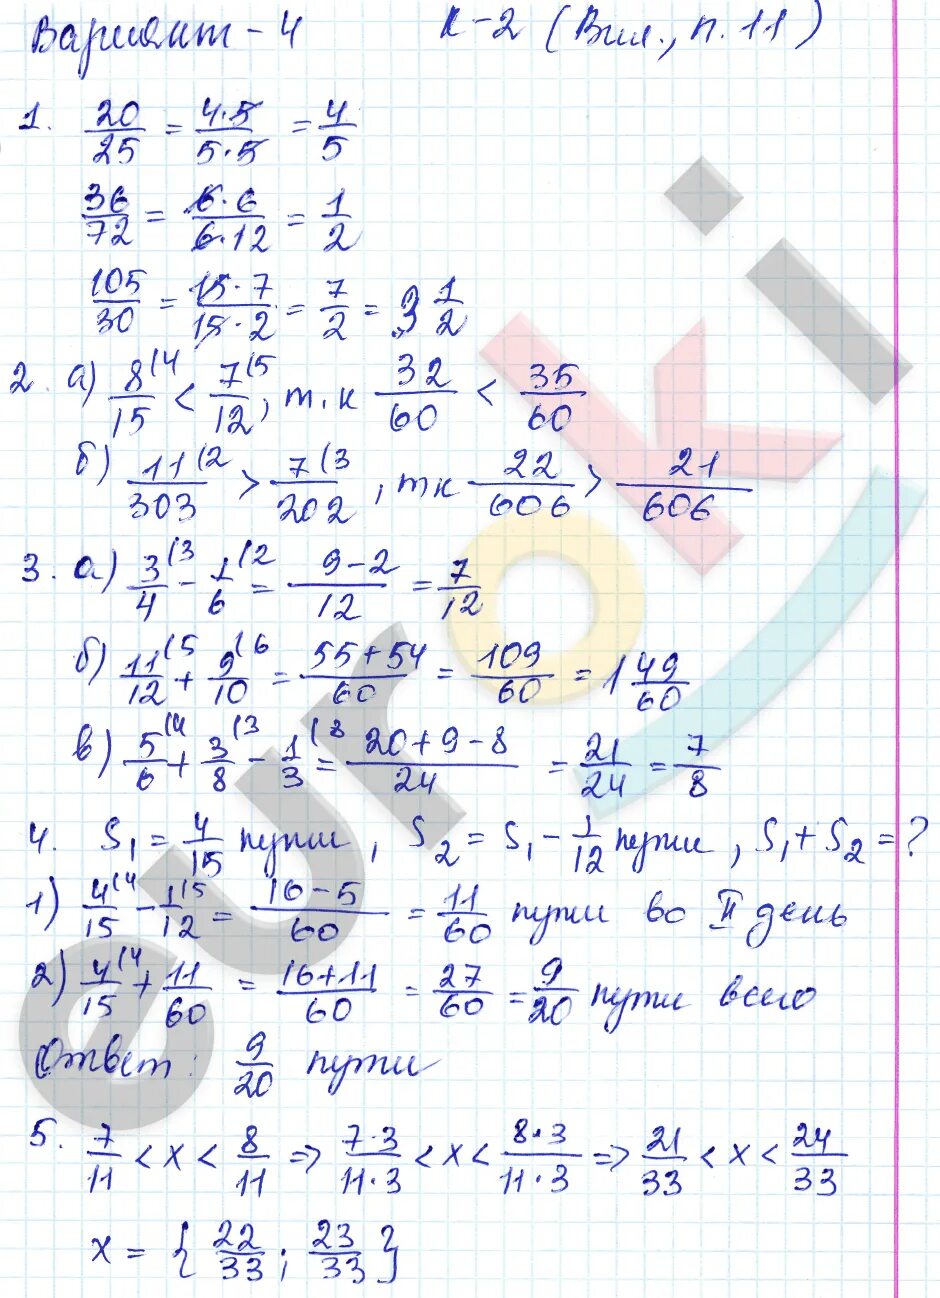 Вариант - 4 К-2 (Вил., п. 11)
1. 20/25 = 4·5/5·5 = 4/5
36/72 = 6·6/6·12 = 1/2
105/30 = 15·7/15·2 = 7/2 = 3 1/2
2. а) 8(4/15 < 7(5/12, т.к 32/60 < 35/60
б) 11(2/303 > 7(3/202, тк 22/606 > 21/606
3. а) 3(3/4 - 1(2/6 = 9-2/12 = 7/12
б) 11(5/12 + 9(6/10 = 55+54/60 = 109/60 = 1 49/60
в) 5(4/6 + 3(3/8 - 1(8/3 = 20+9-8/24 = 21/24 = 7/8
4. S₁ = 4/15 пути, S₂ = S₁ - 1/12 пути, S₁ + S₂ = ?
1) 4(4/15 - 1(5/12 = 16-5/60 = 11/60 пути во II день
2) 4(4/15 + 11/60 = 16+11/60 = 27/60 = 9/20 пути всего
Ответ: 9/20 пути
5. 7/11 < x < 8/11 => 7·3/11·3 < x < 8·3/11·3 => 21/33 < x < 24/33
x = {22/33; 23/33}
euroki